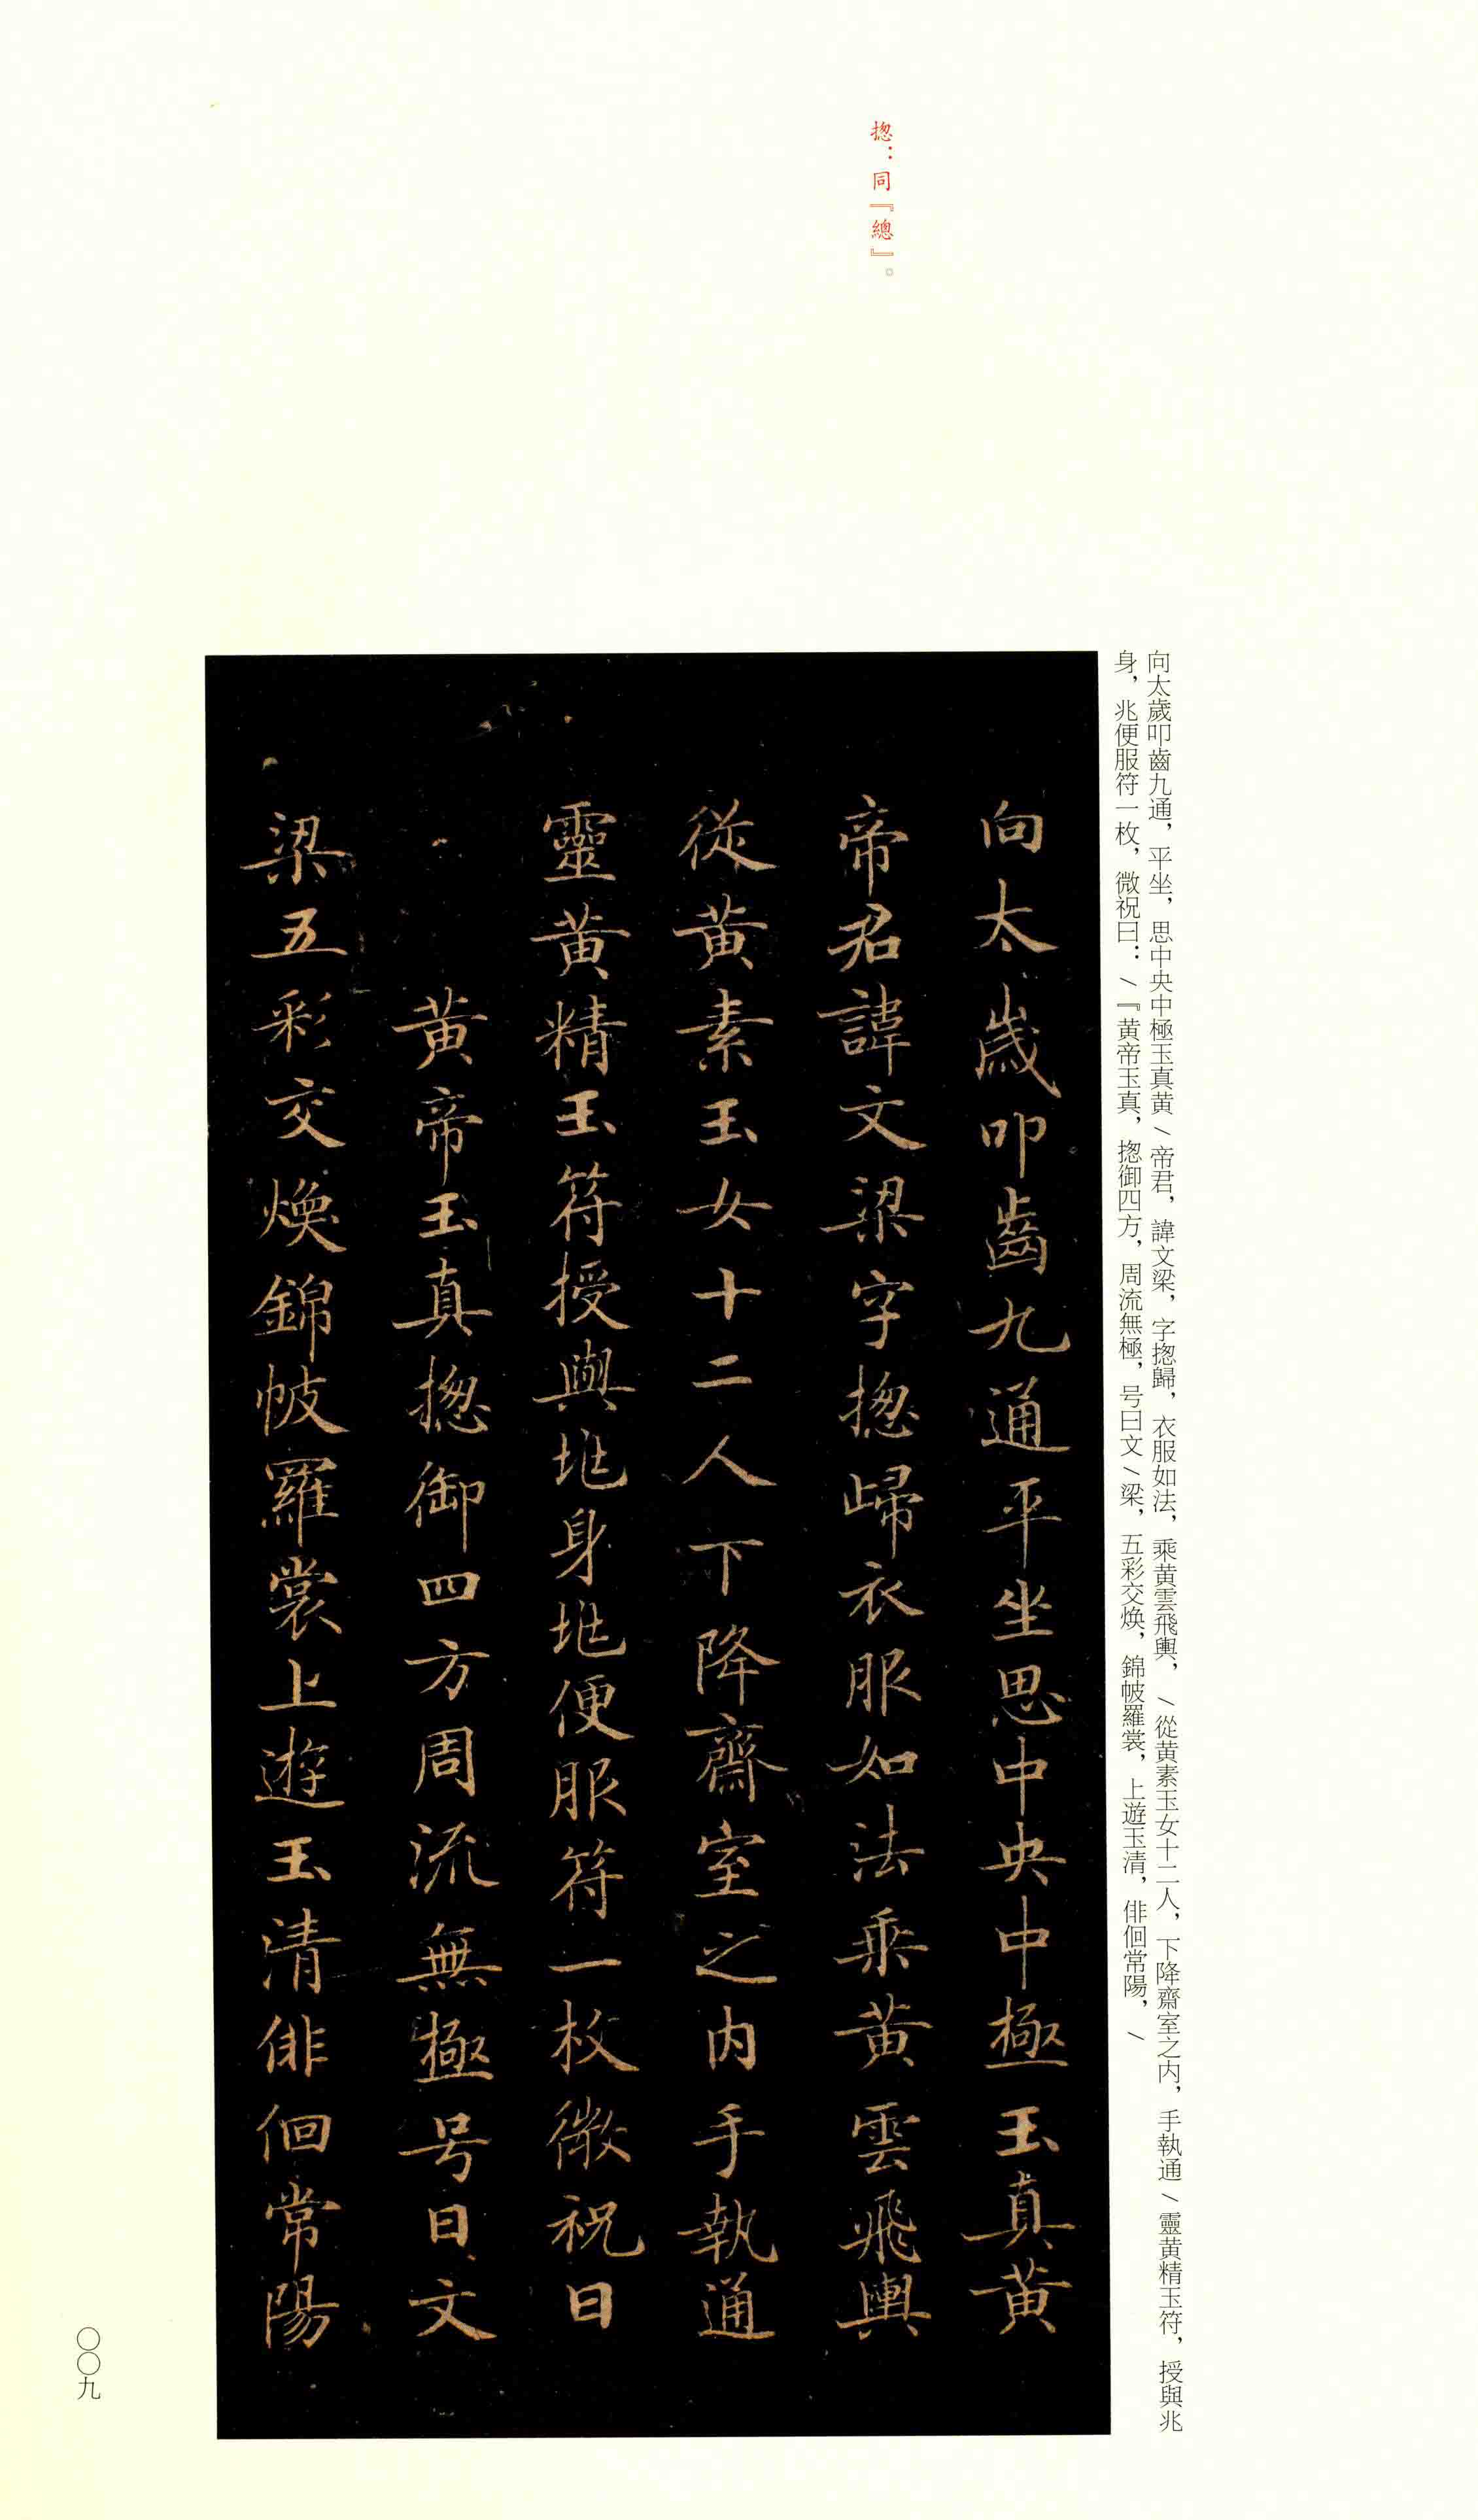 揔：同『總』。
向太歲叩齒九通，平坐，思中央中極玉真黄／帝君，諱文梁，字揔歸，衣服如法，乘黄雲飛輿，／從黄素玉女十二人，下降齋室之内，手執通／靈黄精玉符，授與兆
身，兆便服符一枚，微祝曰：／『黄帝玉真，揔御四方，周流無極，号曰文／梁，五彩交焕，錦帔羅裳，上遊玉清，俳佪常陽，／
向太歲叩齒九通平坐思中央中極玉真黄
帝君諱文梁字揔歸衣服如法乘黄雲飛輿
從黄素玉女十二人下降齋室之内手執通
靈黄精玉符授與兆身兆便服符一枚微祝曰
黄帝玉真揔御四方周流無極号曰文
梁五彩交焕錦帔羅裳上遊玉清俳佪常陽
〇〇九